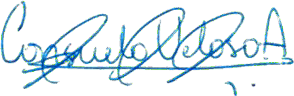 Consuelo Veloso A